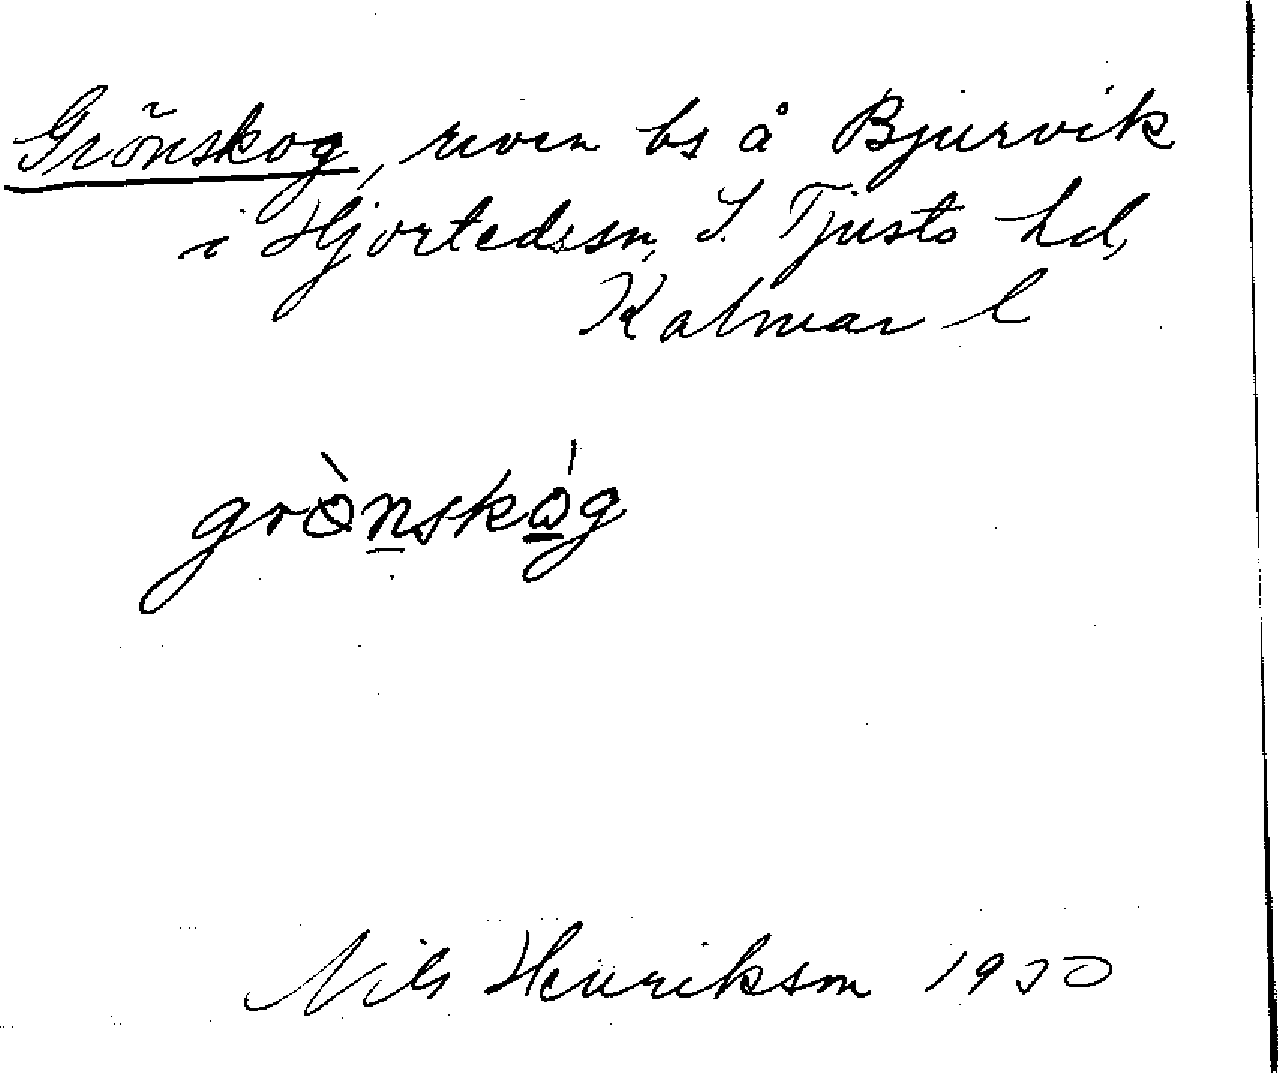 Grönskog, riven bs å Bjurvik
i Hjortedssn, S. Tjusts hd,
Kalmar l
grònskóg
Nils Henrikson 1930